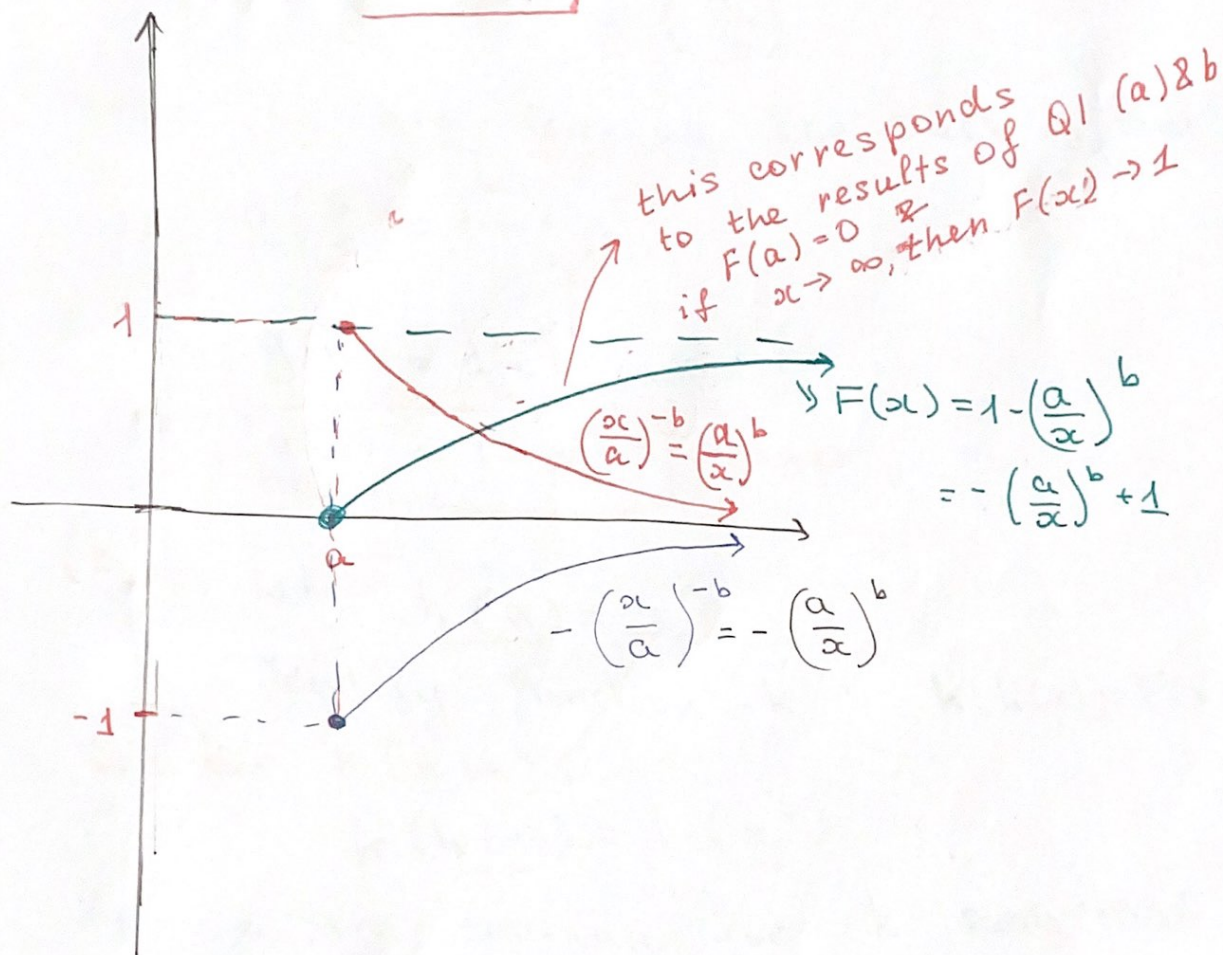 this corresponds
to the results of Q1 (a) & b
F(a) = 0 &
if x → ∞, then F(x) → 1
1
F(x) = 1 - (a/x)^b
(x/a)^-b = (a/x)^b
= - (a/x)^b + 1
a
- (x/a)^-b = - (a/x)^b
-1